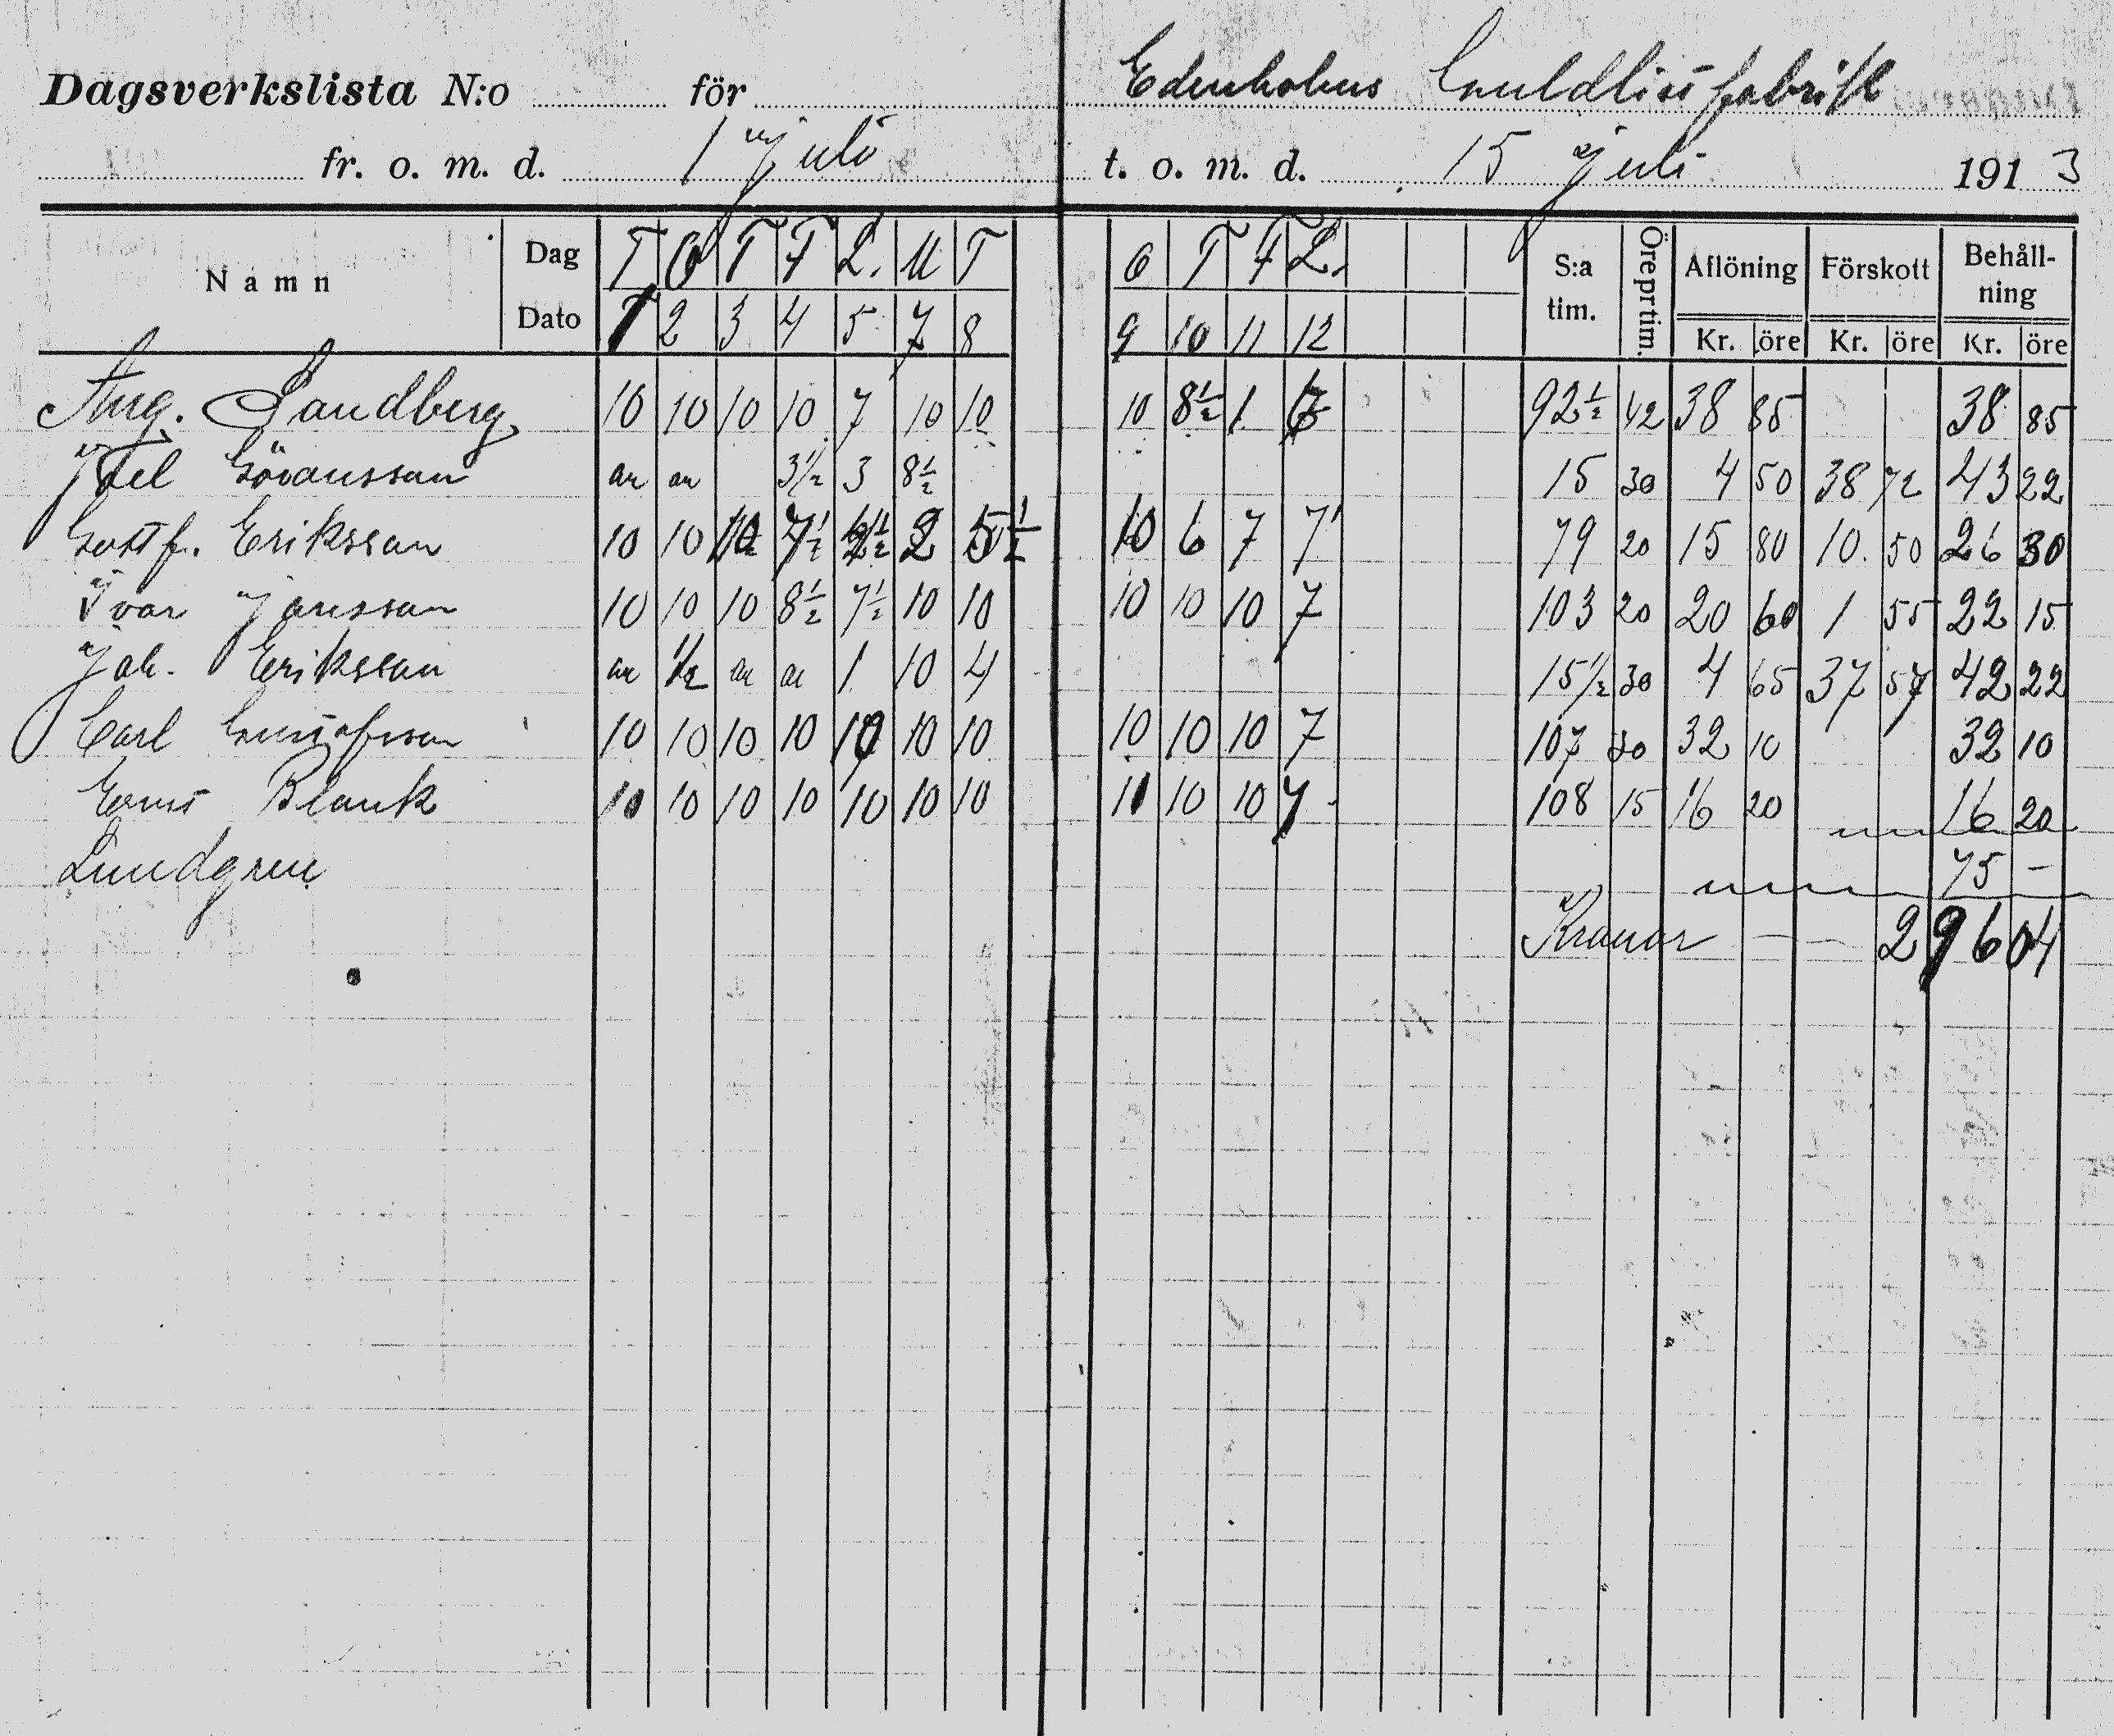 Dagsverkslista N:o för Edenholms Guldlistfabrik
fr. o. m. d. 1 Juli t. o. m. d. 15 Juli 1913
Namn Dag T O T F L. M T O T F L. S:a tim. Öre pr tim. Aflöning Förskott Behåll-ning
Dato 1 2 3 4 5 7 8 9 10 11 12 Kr. öre Kr. öre Kr. öre
Aug. Sandberg 10 10 10 10 7 10 10 10 8½ 1 6 92½ 42 38 85 38 85
Axel Göransson an an 3½ 3 8½ 15 30 4 50 38 72 43 22
Gottf. Eriksson 10 10 7½ 2 5½ 10 6 7 7 79 20 15 80 10. 50 26 30
Ivar Jansson 10 10 10 8½ 7½ 10 10 10 10 10 7 103 20 20 60 1 55 22 15
Joh. Eriksson an ½ an an 1 10 4 15½ 30 4 65 37 57 42 22
Carl Gustafsson 10 10 10 10 10 10 10 10 10 10 7 107 30 32 10 32 10
Ernst Blank 10 10 10 10 10 10 10 11 10 10 7 108 15 16 20 16 20
Lundgren 75 –
Kronor — — 296 04